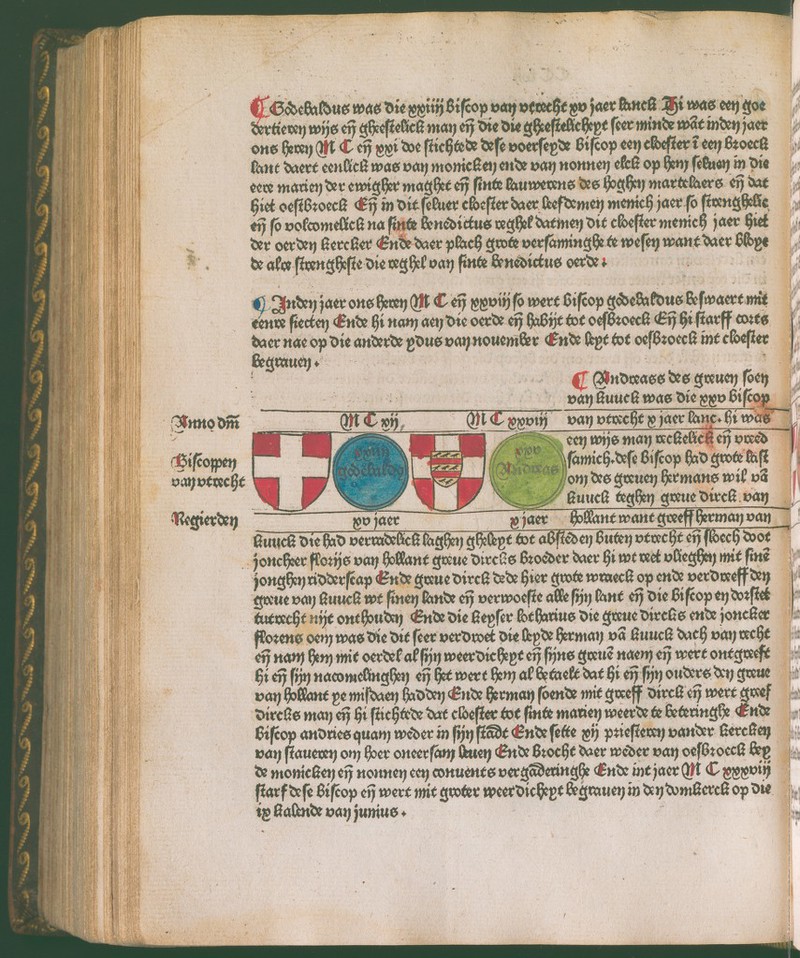 ¶ Godebaldus was die xxiiij biscop van vtrecht xv jaer lanck Hi was een goe
dertieren wijs eñ gheestelick man eñ die die gheestelicheyt seer minde wāt inden jaer
ons heren M C eñ xxi doe stichtede dese voerseyde biscop een cloester ī een broeck
lant daert eenlick was van monicken ende van nonnen elck op hem seluen in die
eere marien der ewigher maghet eñ sinte lauwerens des hoghen martelaers eñ dat
hiet oestbroeck Eñ in dit seluer cloester daer leefdemen menich jaer so strenghelic
eñ so volcomelick na sinte benedictus reghel datmen dit cloester menich jaer hiet
der oerden kercker Ende daer plach grote versaminghe te wesen want daer bloye
de alre strengheste die reghel van sinte benedictus oerde.
¶ Inden jaer ons heren M C eñ xxviij so wert biscop godebaldus beswaert mit
eenre siecten Ende hi nam aen die oerde eñ habijt tot oesbroeck Eñ hi starff corts
daer nae op die anderde ydus van nouember Ende leyt tot oesbroeck int cloester
begrauen.
¶ Andreas des greuen soen
van kuuck was die xxv biscop
van vtrecht x jaer lanc. hi was
een wijs man reckelick eñ vreed
samich. dese biscop had grote last
om des greuen hermans wil vā
kuuck teghen greue dirck van
hollant want greeff herman van
Anno dm̄
M C xij,
M C xxviij
Biscoppen
van vtrecht
xxiiij
godebaldꝰ
xxv
Andreas
Regierden
xv jaer
x jaer
kuuck die had verradelick laghen gheleyt tot abstedenbuten vtrecht eñ sloech doot
joncheer florijs van hollant greue dircks broeder daer hi wt reet vlieghen mit sinē
jonghen ridderscap Ende greue dirck dede hier grote wraeck op ende verdreeff den
greue van kuuck wt sinen lande eñ verwoeste alle sijn lant eñ die biscop en dorstet
tutrecht nijt onthouden Ende die keyser lotharius die greue dircks ende joncker
florens oem was die dit seer verdroet die leyde herman vā kuuck dach van recht
eñ nam hem mit oerdel al sijn weerdicheyt eñ sijns greuē naem eñ wert ontgreeft
hi eñ sijn nacomelinghen eñ het wert hem al betaelt dat hi eñ sijn ouders den greue
van hollant ye misdaen hadden Ende herman soende mit greeff dirck eñ wert greef
dircks man eñ hi stichtede dat cloester tot sinte marien weerde te beteringhe Ende
biscop andries quam weder in sijn stādt Ende sette xij priesteren vander kercken
van staueren om hoer oneersam leuen Ende brocht daer weder van oesbroeck bey
de monicken eñ nonnen een conuents vergāderinghe Ende int jaer M C xxxviij
starf dese biscop eñ wert mit groter weerdicheyt begrauen in den domkerck op die
ix kalende van junius.